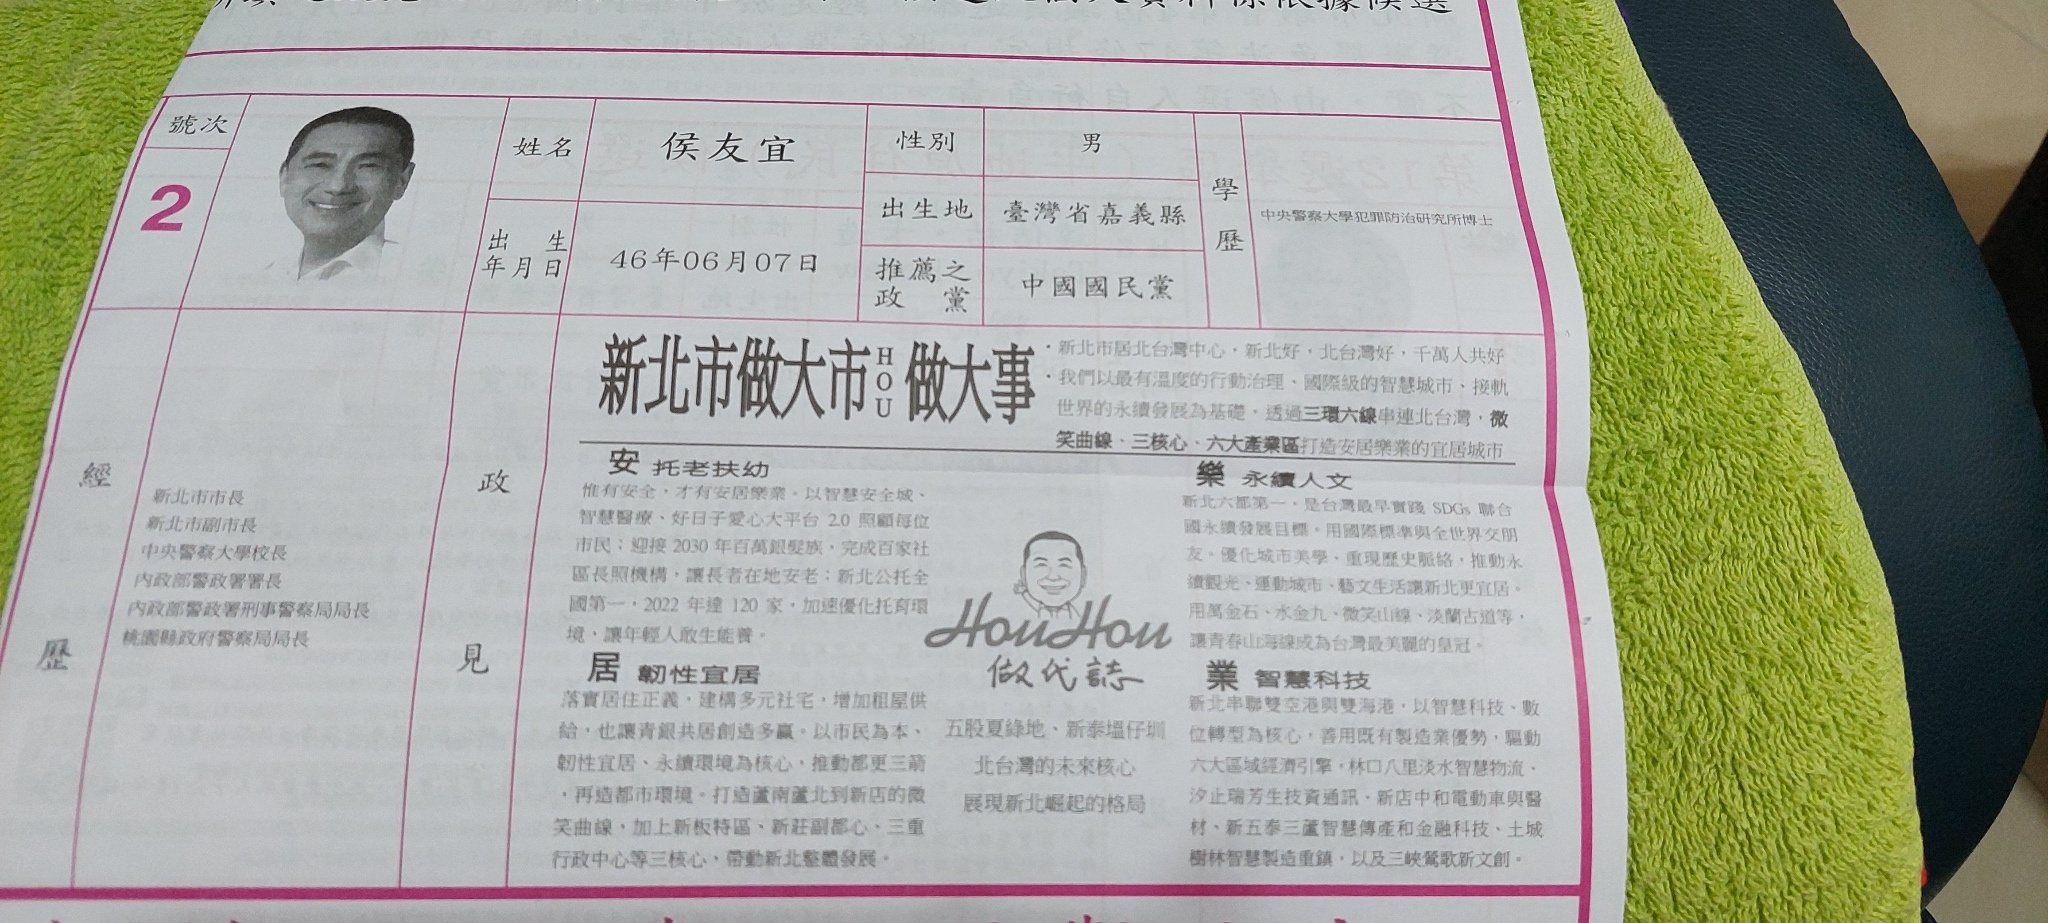 號次
2
姓名
侯友宜
性別
男
出生地
臺灣省嘉義縣
出生
年月日
46年06月07日
推薦之
政黨
中國國民黨
學歷
中央警察大學犯罪防治研究所博士
經歷
新北市市長
新北市副市長
中央警察大學校長
內政部警政署署長
內政部警政署刑事警察局局長
桃園縣政府警察局局長
政見
新北市做大市HOU做大事
·新北市居北台灣中心，新北好，北台灣好，千萬人共好
·我們以最有溫度的行動治理、國際級的智慧城市、接軌
世界的永續發展為基礎，透過三環六線串連北台灣，微
笑曲線、三核心、六大產業區打造安居樂業的宜居城市
安 托老扶幼
惟有安全，才有安居樂業。以智慧安全城、
智慧醫療、好日子愛心大平台 2.0 照顧每位
市民；迎接 2030 年百萬銀髮族，完成百家社
區長照機構，讓長者在地安老；新北公托全
國第一，2022 年達 120 家，加速優化托育環
境，讓年輕人敢生能養。
居 韌性宜居
落實居住正義，建構多元社宅，增加租屋供
給，也讓青銀共居創造多贏。以市民為本、
韌性宜居、永續環境為核心，推動都更三箭
，再造都市環境。打造蘆南蘆北到新店的微
笑曲線，加上新板特區、新莊副都心、三重
行政中心等三核心，帶動新北整體發展。
HouHou
做代誌
五股夏綠地、新泰塭仔圳
北台灣的未來核心
展現新北崛起的格局
樂 永續人文
新北六都第一，是台灣最早實踐 SDGs 聯合
國永續發展目標，用國際標準與全世界交朋
友。優化城市美學、重現歷史脈絡，推動永
續觀光、運動城市、藝文生活讓新北更宜居。
用萬金石、水金九、微笑山線、淡蘭古道等，
讓青春山海線成為台灣最美麗的皇冠。
業 智慧科技
新北串聯雙空港與雙海港，以智慧科技、數
位轉型為核心，善用既有製造業優勢，驅動
六大區域經濟引擎，林口八里淡水智慧物流、
汐止瑞芳生技資通訊、新店中和電動車與醫
材、新五泰三蘆智慧傳產和金融科技、土城
樹林智慧製造重鎮，以及三峽鶯歌新文創。